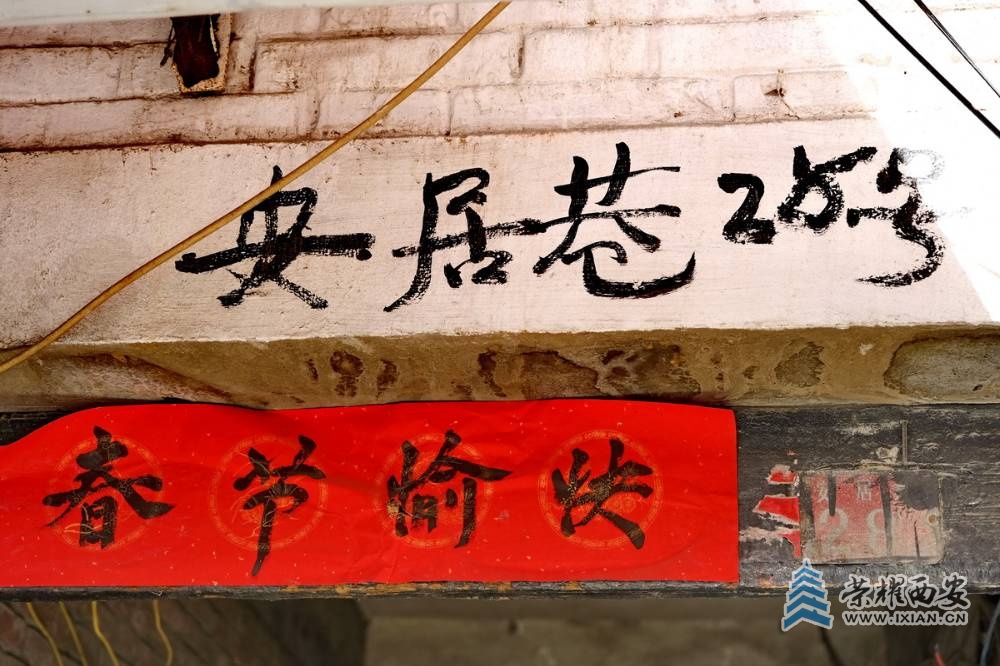 安居巷28号
春节愉快
安居
28
荣耀西安
WWW.IXIAN.CN